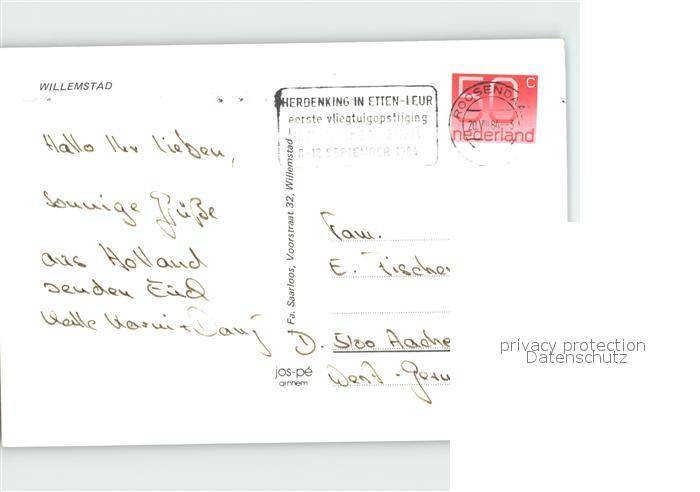 WILLEMSTAD
HERDENKING IN ETTEN-LEUR
eerste vliegtuigopstijging
8-12 SEPTEMBER 1984
ROOSENDAAL
20 VIII 84
50 C
nederland
Hallo Ihr lieben,
sonnige Grüße
aus Holland
senden Euch
Fa. Saarloos, Voorstraat 32, Willemstad
Fam.
E. Fischer
D. 5100 Aache
West-Germ
jos-pé
arnhem
privacy protection
Datenschutz